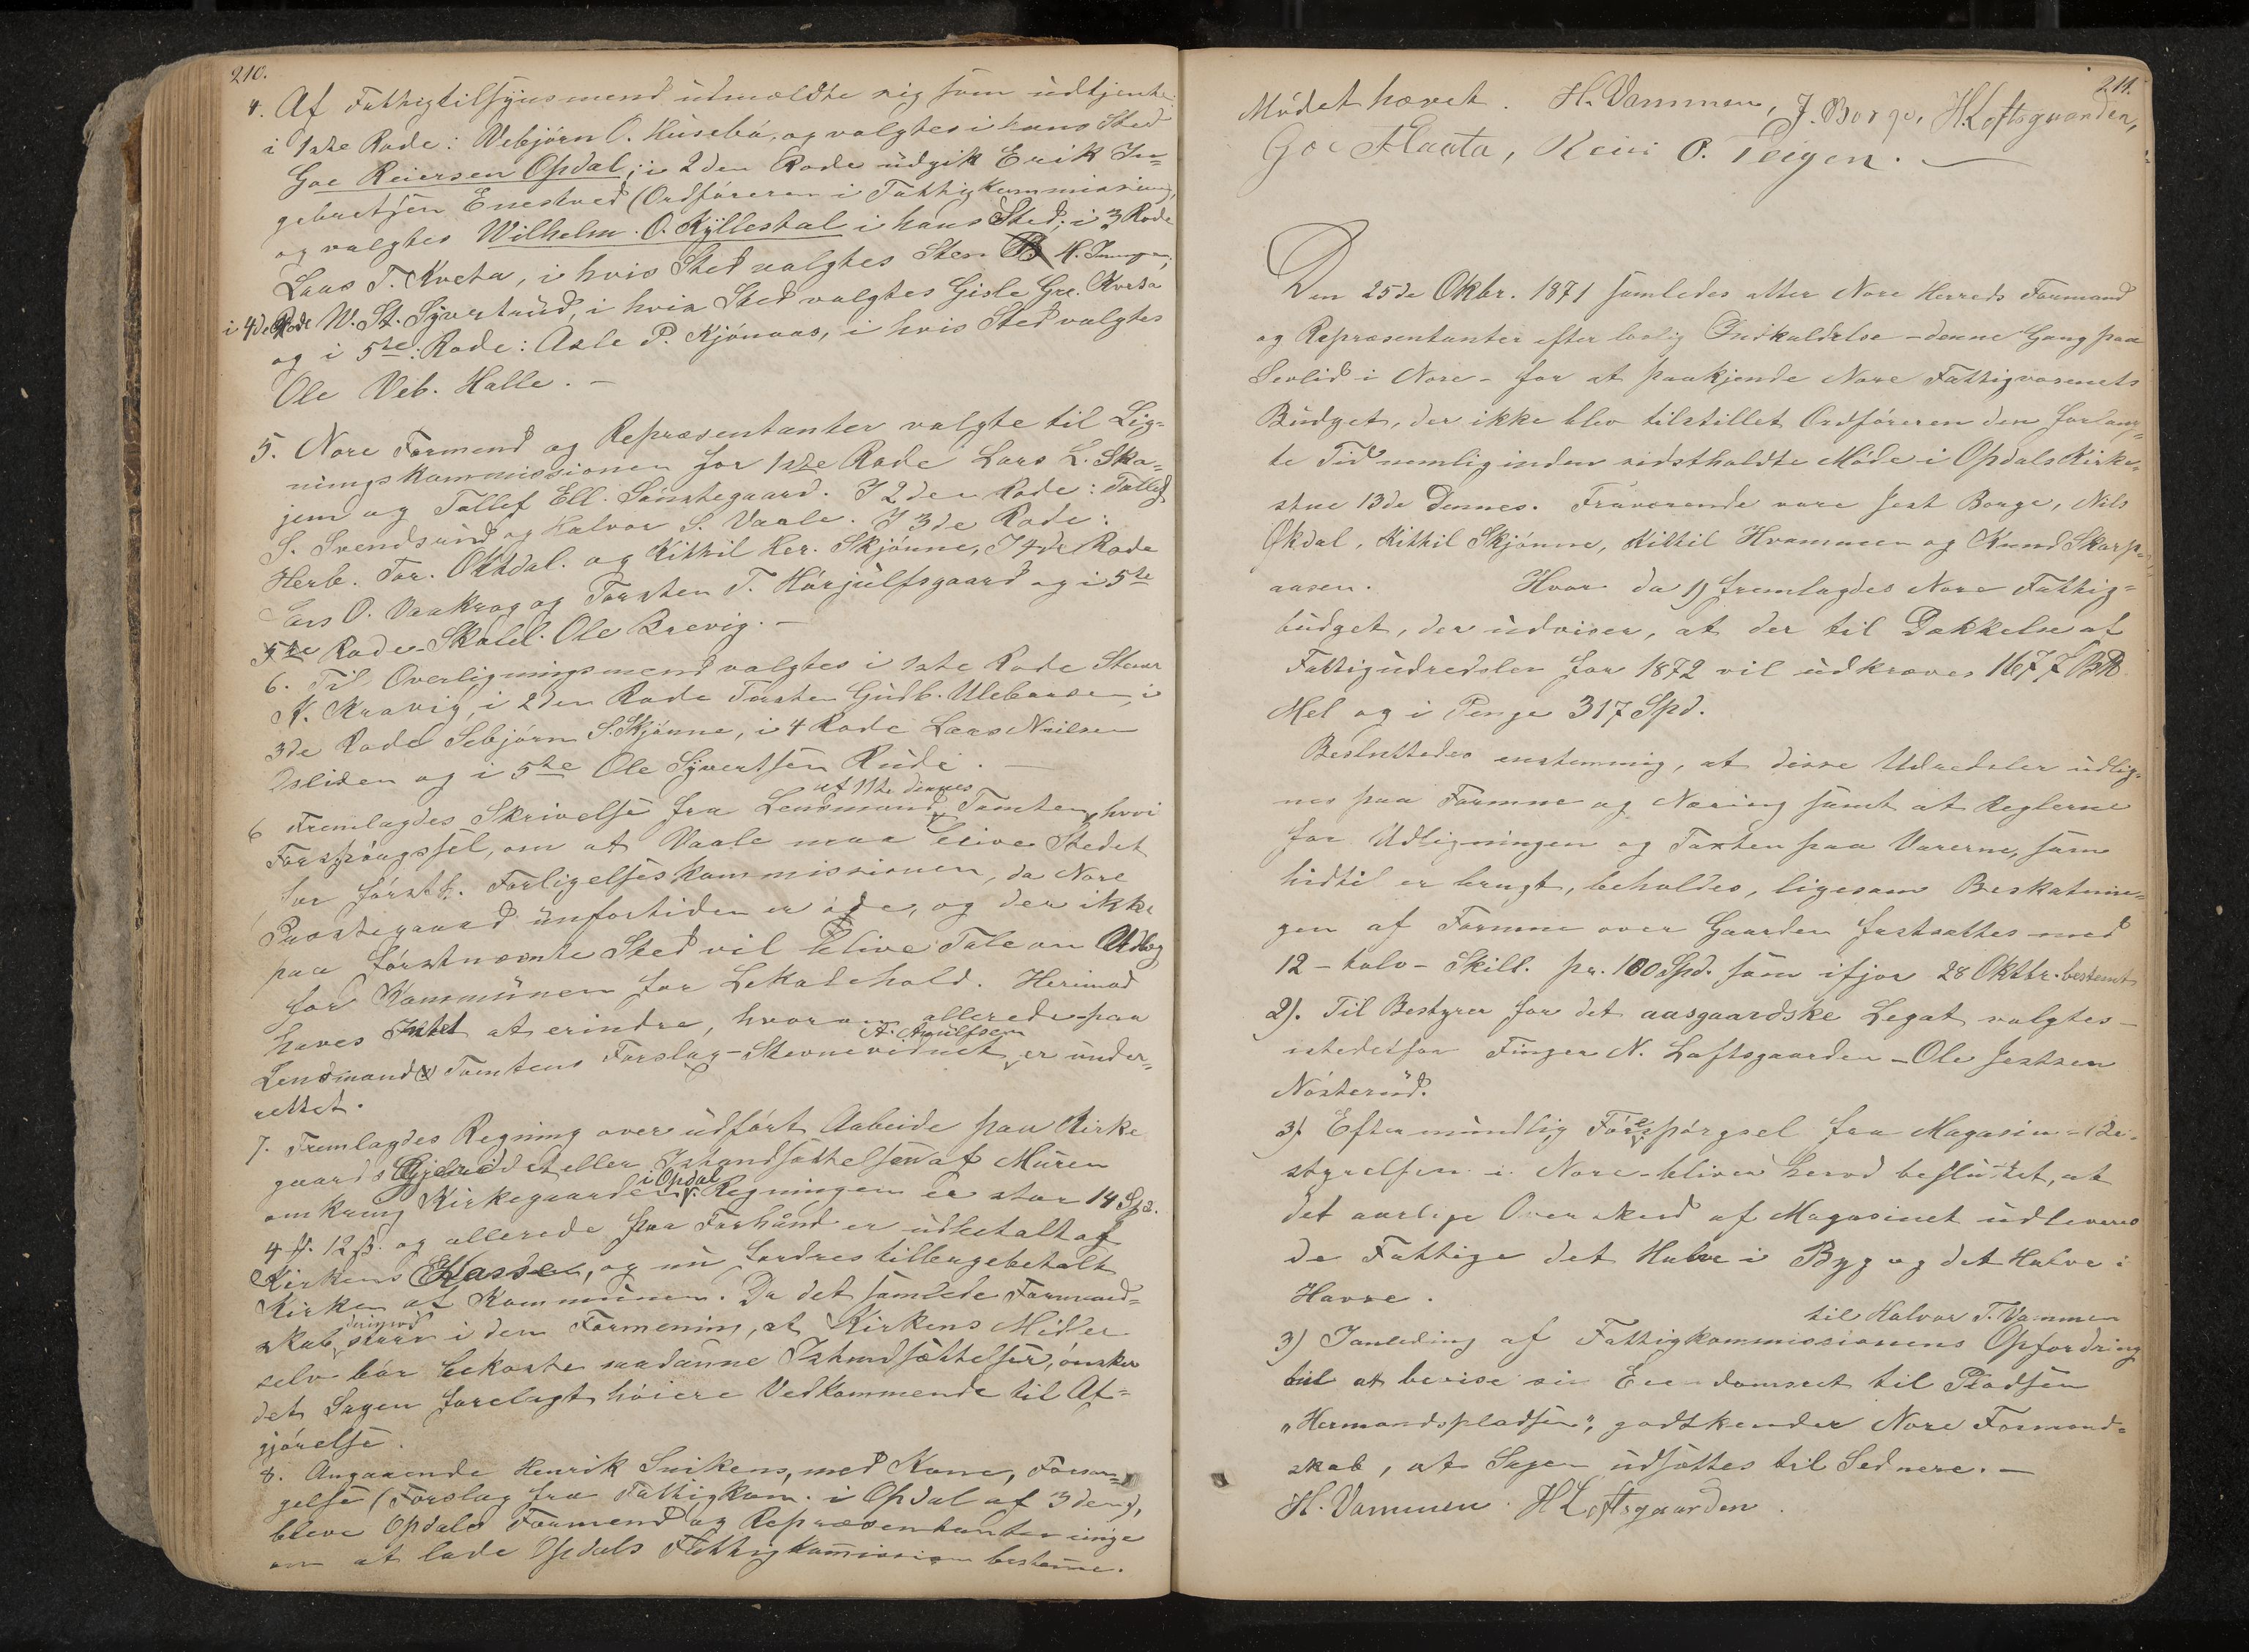 210.
4. Af Fattigtilsÿnsmend udmældte sig som udtjente:
i 1ste Rode: Vebjørn O. Husebø, og valgtes i hans Sted
Goe Reiersen Opdal; i 2den Rode udgik Erik In-
gebretsen Enestved (Ordføreren i Fattigkommissionen,
og valgtes Wilhelm O. Kÿllestal i hans Sted; i 3 Rode
Laas T. Kveta, i hvis Sted valgtes Sten H.
i 4de Rode W. St. Sÿvertrud, i hvis Sted valgtes Gisle Gre. Kvisa
og i 5te: Rode: Asle P. Kjønaas, i hvis Sted valgtes
Ole Veb. Halle. -
5. Nore Formend og Repræsentanter valgte til Lig-
ningskommissionen for 1ste Rode Lars L. Ska-
jem og Tollef Ell. Sønstegaard. I 2den Rode: Tollef
S. Svendsrud og Halvor S. Vaale. I 3de Rode:
Herb. Tor. Oktdal. og Kittil Her. Skjønne, I 4de Rode
Lars O. Vaakrog og Torsten T. Hørjulfsgaard og i 5te
5te Rode - Skoled. Ole Brevig. -
6. Til Overligningsmend valgtes i 1ste Rode Steenar
K. Kravig, i 2den Rode Torsten Gudb. Ulebaasen, i
3de Rode Sebjørn S. Skjønne, i 4 Rode Lars Neilsen
Osliden og i 5te Ole Sÿvertsen Rude. -
af 11te dennes
6 Fremlagdes Skrivelse fra Lensmand Tomten, hvori
Forspørgssel, om at Vaale maa blive Stedet
for førstk. Forligelseskommissionen, da Nore
Præstegaard unfortiden er øde, og der ikke
paa førstnævnte Sted vil blive Tale om Udlæg
for Kommunen for Lokalehold. Herimod
haves Intet at erindre, hvorom allerede paa
A. Aqulfsen
Lensmand Tomtens Forslag - Stevnevidnet er under-
rettet.
7. Fremlagdes Regning over udført Arbeide paa Kirke
gaards Gjerdet eller Istandsættelsen af Muren
i Opdal
omkring Kirkegaarden. Regningen er stor 14 Spd.
4 ₰. 12 β. og allerede paa Forhånd er udbetalt af
Kirkens Kasse, og nu fordres tilbagebetalt
Kirken af Kommunen. Da det samlede Formand-
derimod
skab staar i den Formening, at Kirkens Midler
selv bør bekoste saadanne Istandsættelser, ønsker
det Sagen forelagt høiere Vedkommende til Af-
gjørelse.
8. Angaaende Henrik Snikens, med Kone, Forsør-
gelse (Forslag fra Fattigkom. i Opdal af 3 den),
bleve Opdals Formend og Repræsentanter enige
om at lade Opdals Fattigkommission bestemme.
211.
Mødet hævet. H. Vammen, J. Borge, H. Loftsgaarden,
Goe Haata, O. Teigen. -
Den 25de Okbr. 1871 samledes atter Nore Herreds Formænd
og Repræsentanter efter lovlig Indkaldelse - denne Gang paa
Sevlid i Nore - for at paakjende Nore Fattigvæsenets
Budget, der ikke blev tilstillet Ordføreren den forlang-
te Tid nemlig inden sidstholdte Møde i Opdals Kirke-
stue 13de Dennes. Fraværende vare Jest Borge, Nils
Økdal, Kittil Skjønne, Kittil Hvammen og Knud Skarp-
aasen. Hvor da 1) fremlagdes Nore Fattig-
budget, der udviser, at der til Dækkelse af
Fattigudredsler for 1872 vil udkræves 1677 B℔
Mel og i Penge 317 Spd.
Besluttedes enstemmig, at disse Udredsler udlig-
nes paa Formue og Næring samt at Reglerne
for Udligningen og Taxten paa Varerne, som
hidtil er brugt, beholdes, ligesom Beskatnin-
gen af Formue over Gaarden fastsattes med
12 - tolv - Skill. pr. 100 Spd. som ifjor 28 Oktbr. bestemt
2). Til Bestyrer for det aasgaardske Legat valgtes -
istedetfor Finger N. Loftsgaarden - Ole Jestsen
Nøsterud.
3). Efter mundlig Forespørgsel fra Magasin-Be-
styrelsen i Nore - bliver herved besluttet, at
det aarlige Overskud af Magasinet udleveres
de Fattige det Halve i Byg og det Halve i
Havre.
til Halvor T. Vammen
3) I anleding af Fattigkommissionens Opfordring
til at bevise sin Eiendomsret til Pladsen
"Hermandspladsen", godtkender Nore Formand-
skab, at Sagen udsættes til Sednere. -
H. Vammen. H Loftsgaarden.